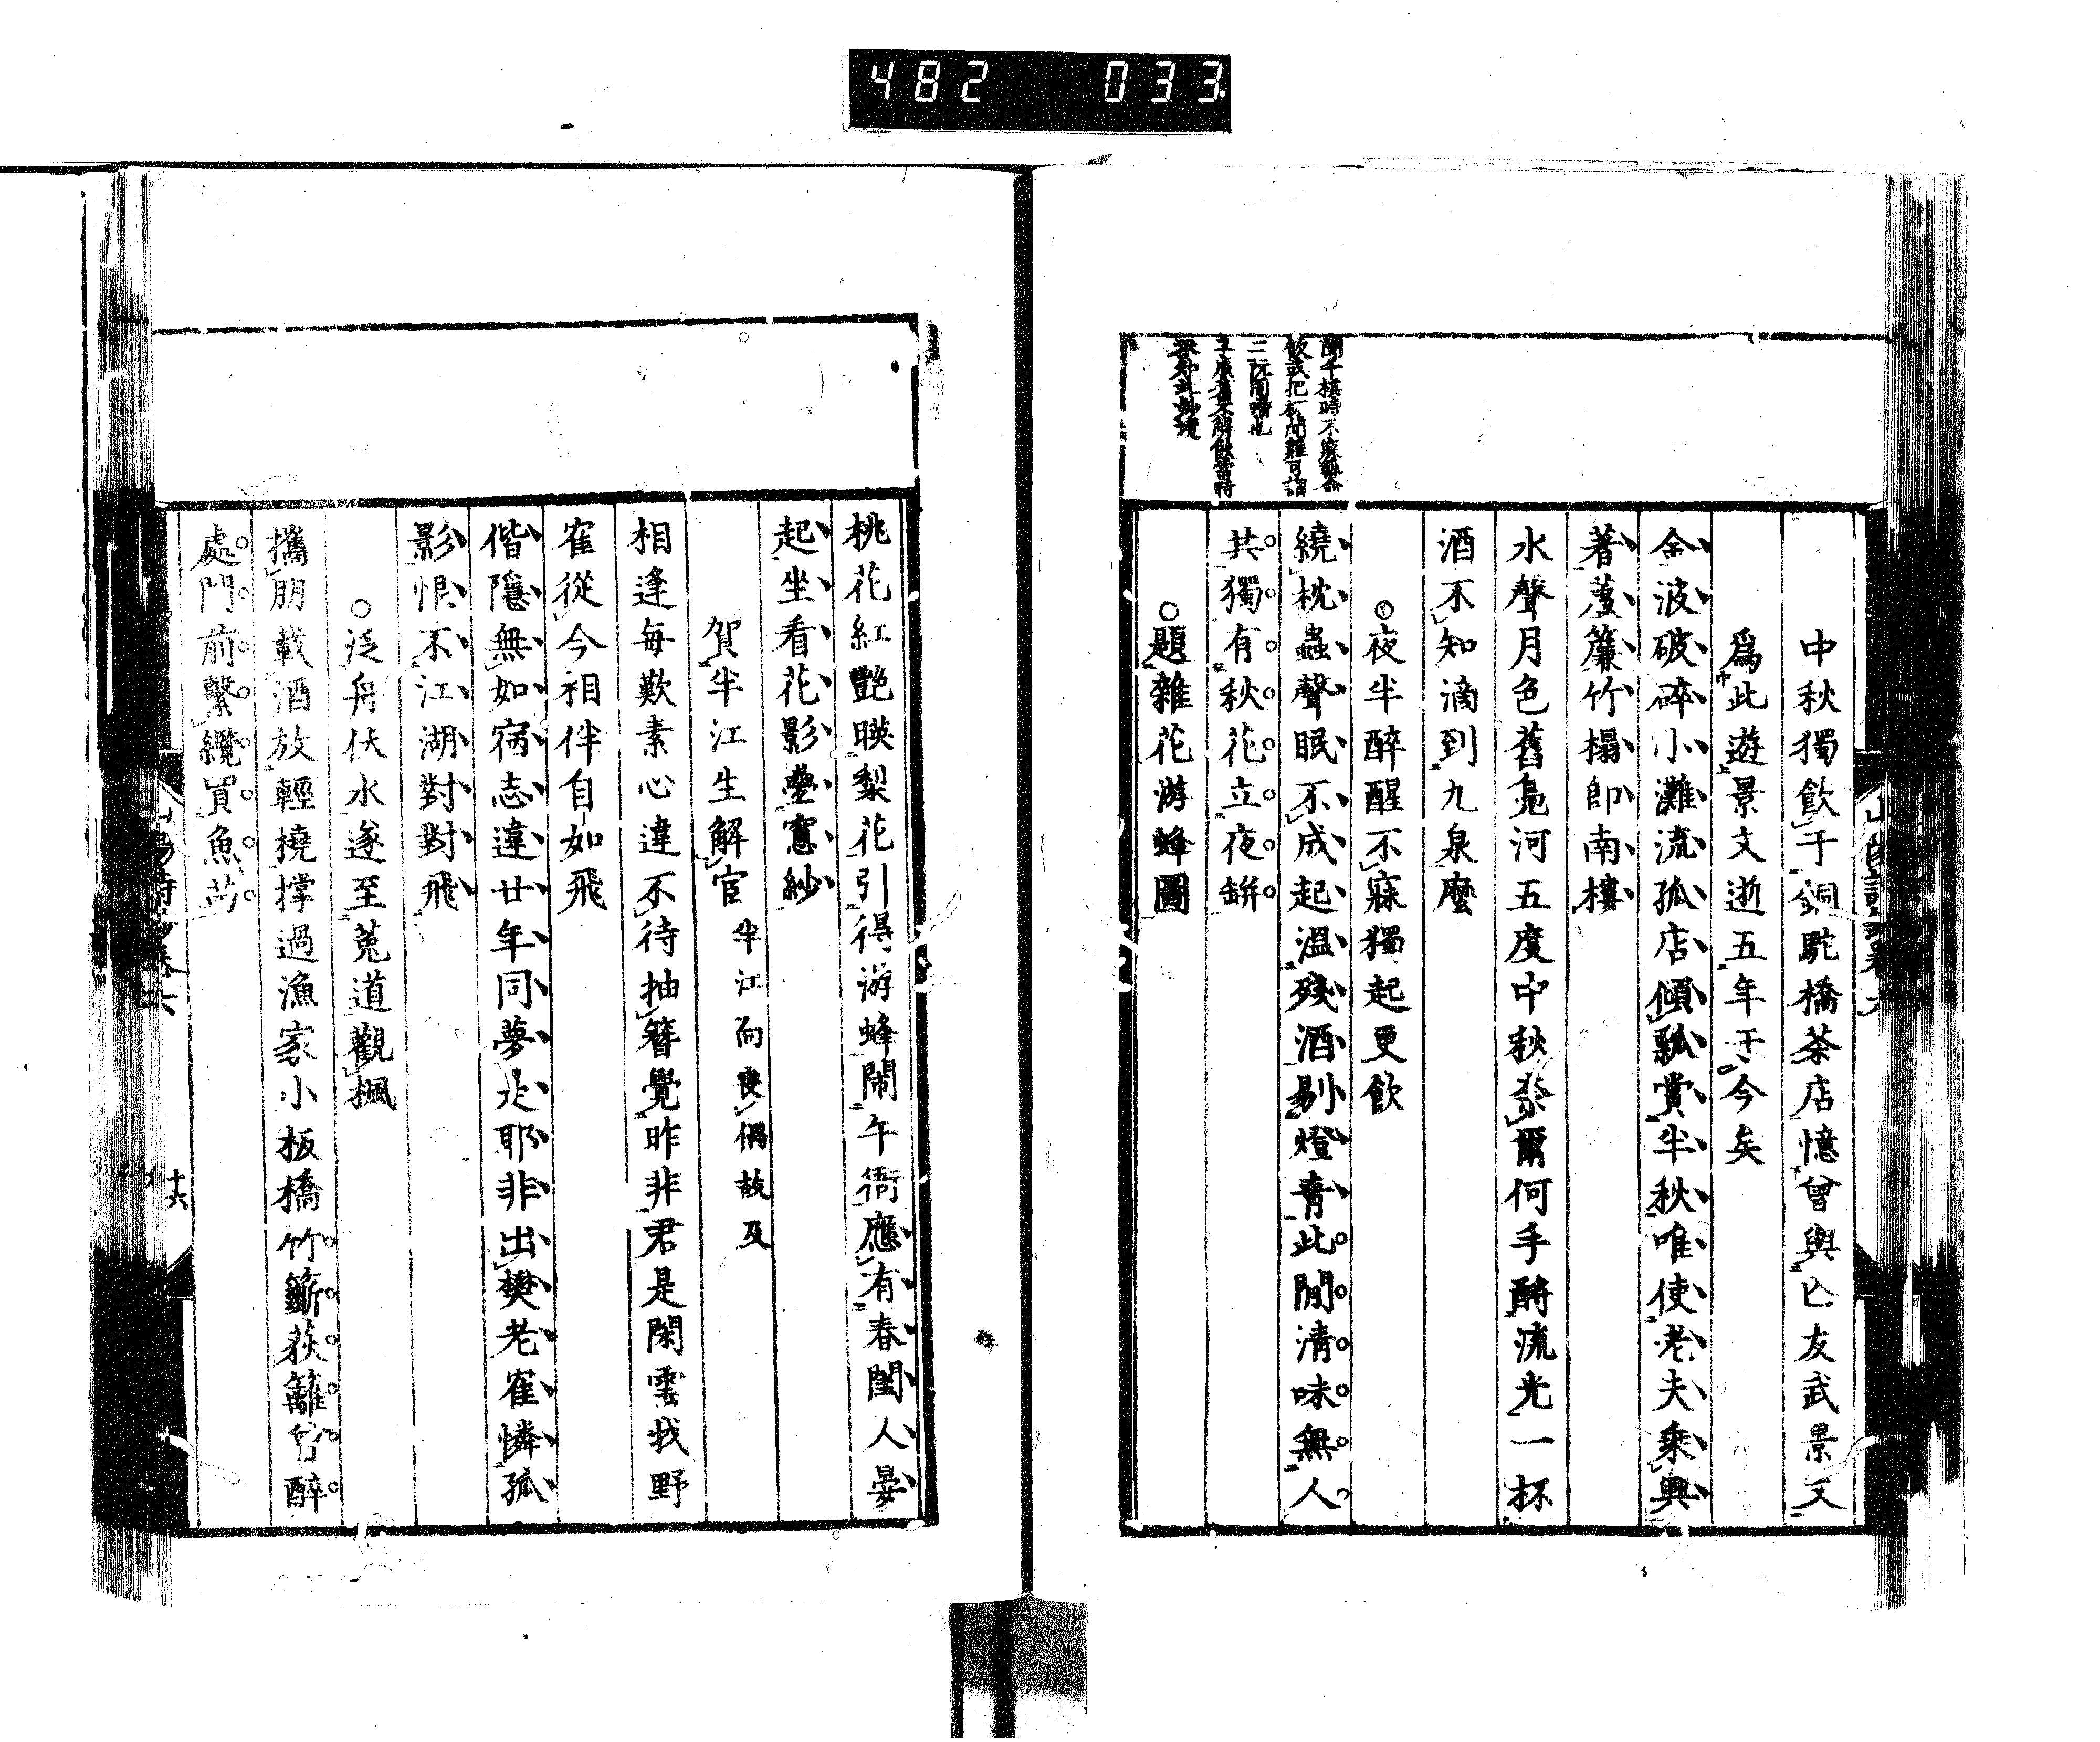 482 033
中秋獨飲于銅駝橋茶店憶曾與亡友武景文
爲此遊景文逝五年于今矣
金波破碎小灘流孤店傾瓢賞半秋唯使老夫乘興
著蘆簾竹榻卽南樓
水聲月色舊鳧河五度中秋奈爾何手酹流光一杯
酒不知滴到九泉麼
○夜半醉醒不寐獨起更飲
繞枕蟲聲眠不成起溫殘酒剔燈靑此間清味無人
共獨有秋花立夜缾
○題雜花游蜂圖
桃花紅艷暎梨花引得游蜂鬧午衙應有春閨人晏
起坐看花影疊窓紗
賀半江生解官 半江向喪偶故及
相逢每歎素心違不待抽簪覺昨非君是閑雲我野
隺從今相伴自如飛
偕隱無如宿志違廿年同夢是耶非出樊老隺憐孤
影恨不江湖對對飛
○泛舟伏水遂至菟道觀楓
攜朋載酒放輕橈撑過漁家小板橋竹籪荻籬曾醉
處門前繫纜買魚苗
十六